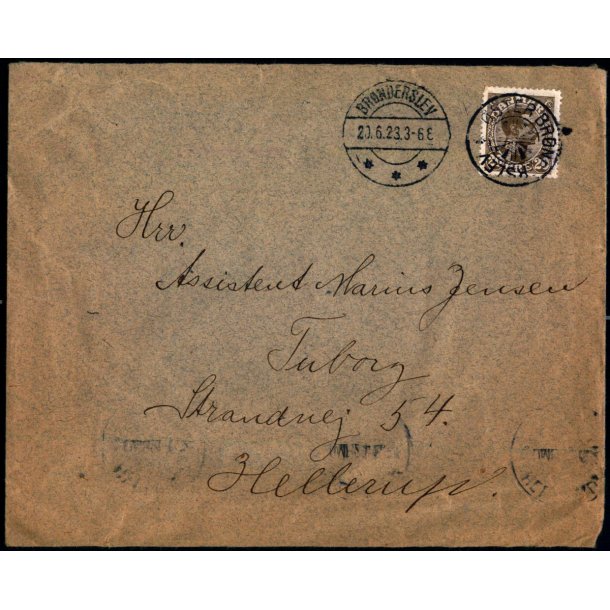 BRØNDERSLEV
20.6.23.3-6E
ØSTER BRØNDERSLEV
Hrr.
Assistent Marius Jensen
Tuborg
Strandvej 54.
Hellerup.